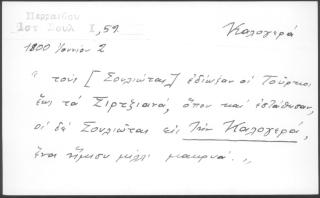 Περραιβού
Ιστ Σουλ I, 59
Καλογερά
1800 Ιουνίου 2
" τους [Σουλιώτας] εδίωξαν οι Τούρκοι
έως τα Σιρτζιανά, όπου και εστάθησαν,
οι δε Σουλιώται εις την Καλογερά,
ένα ήμισυ μίλλι μακρυά. "